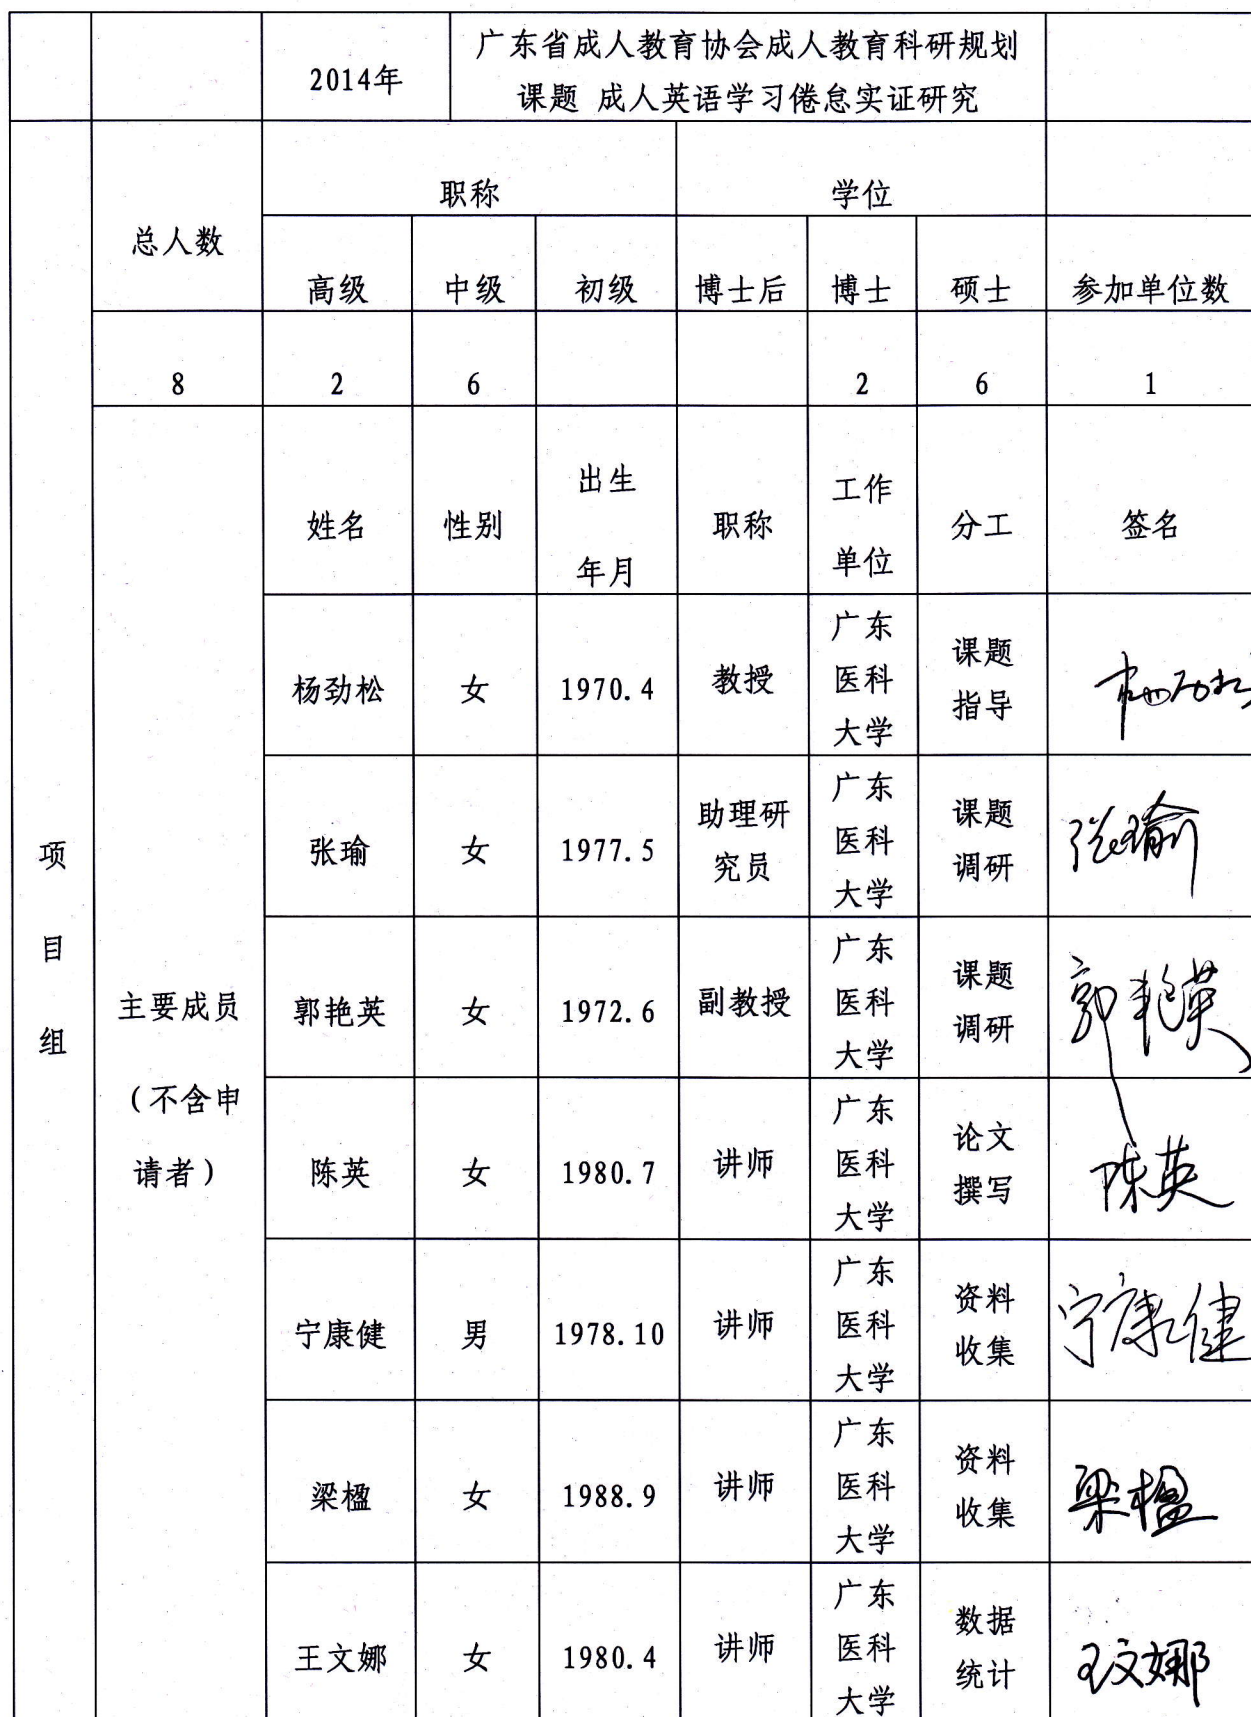 2014年
广东省成人教育协会成人教育科研规划
课题 成人英语学习倦怠实证研究
项
目
组
总人数
职称
学位
高级 中级 初级 博士后 博士 硕士 参加单位数
8 2 6 2 6 1
主要成员
（不含申
请者）
姓名 性别
出生
年月
职称
工作
单位
分工 签名
杨劲松 女 1970.4 教授
广东
医科
大学
课题
指导
张瑜 女 1977.5
助理研
究员
广东
医科
大学
课题
调研
张瑜
郭艳英 女 1972.6 副教授
广东
医科
大学
课题
调研
郭艳英
陈英 女 1980.7 讲师
广东
医科
大学
论文
撰写
陈英
宁康健 男 1978.10 讲师
广东
医科
大学
资料
收集
宁康健
梁楹 女 1988.9 讲师
广东
医科
大学
资料
收集
梁楹
王文娜 女 1980.4 讲师
广东
医科
大学
数据
统计
王文娜